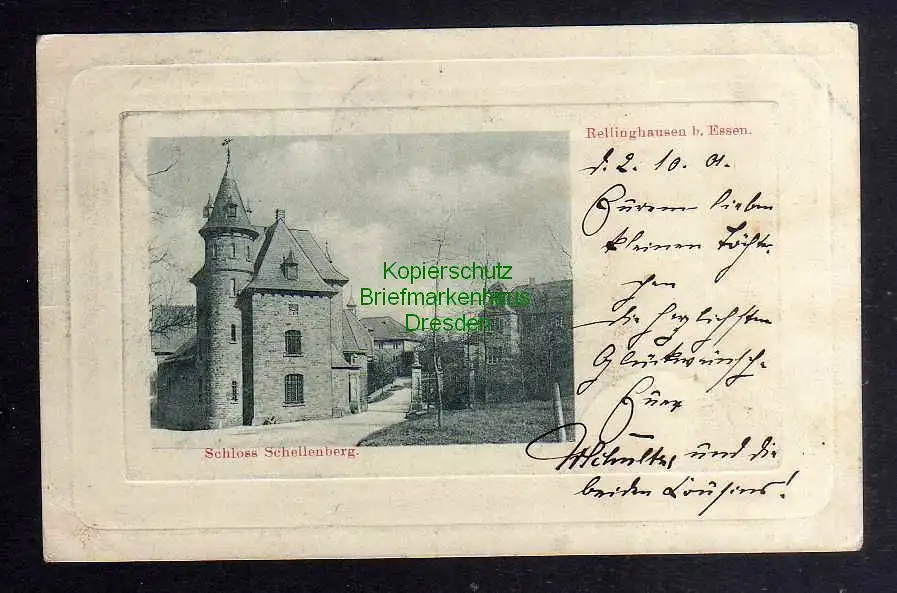 Rellinghausen b. Essen.
d. 2. 10. 01.
Eurem lieben
kleinen Töchter
chen
die herzlichsten
Glückwünsche
Eure
und die
beiden Cousins!
Kopierschutz
Briefmarkenhaus
Dresden
Schloss Schellenberg.